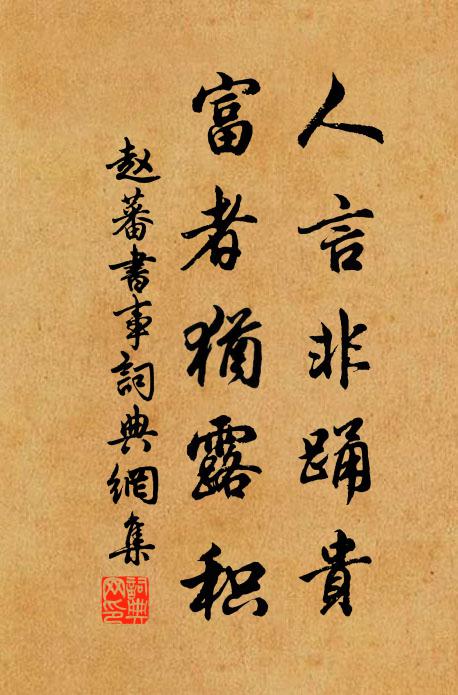 人言非踊貴
富者猶露积
赵蕃書事詞典網集
詞典网印